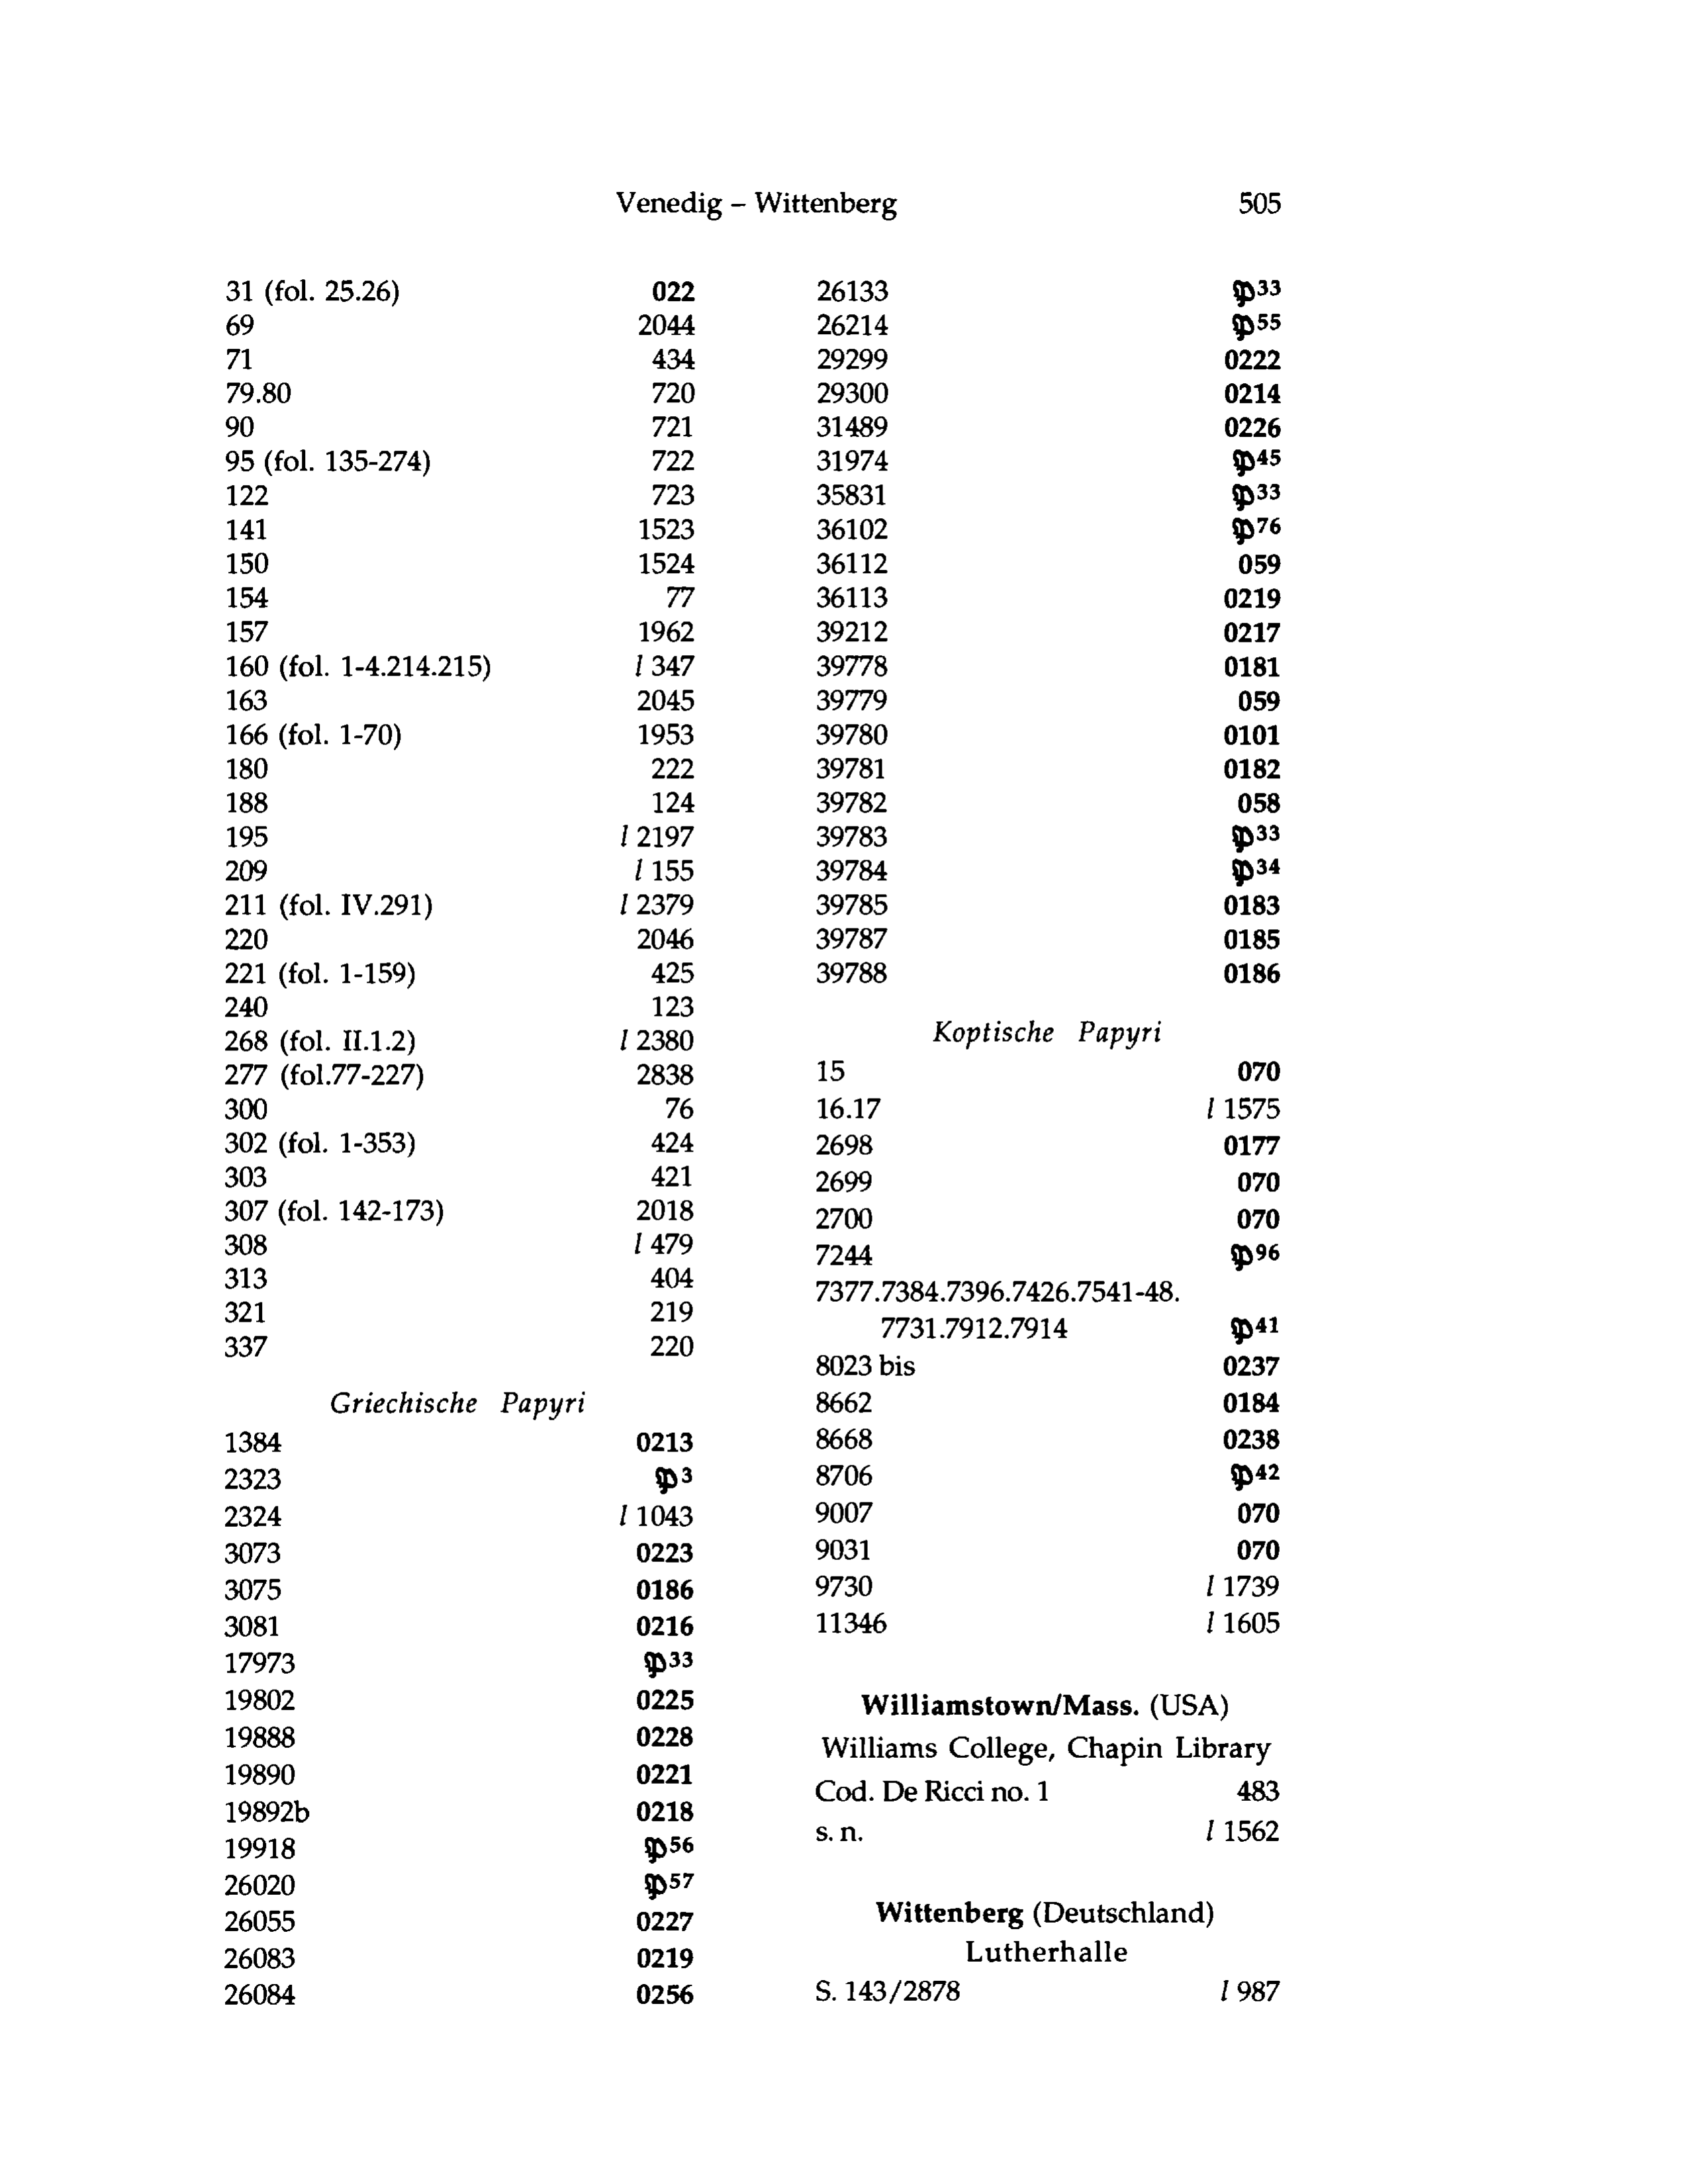 Venedig – Wittenberg 505
31 (fol. 25.26) 022
69 2044
71 434
79.80 720
90 721
95 (fol. 135-274) 722
122 723
141 1523
150 1524
154 77
157 1962
160 (fol. 1-4.214.215) l 347
163 2045
166 (fol. 1-70) 1953
180 222
188 124
195 l 2197
209 l 155
211 (fol. IV.291) l 2379
220 2046
221 (fol. 1-159) 425
240 123
268 (fol. II.1.2) l 2380
277 (fol.77-227) 2838
300 76
302 (fol. 1-353) 424
303 421
307 (fol. 142-173) 2018
308 l 479
313 404
321 219
337 220
Griechische Papyri
1384 0213
2323 𝔓³
2324 l 1043
3073 0223
3075 0186
3081 0216
17973 𝔓³³
19802 0225
19888 0228
19890 0221
19892b 0218
19918 𝔓⁵⁶
26020 𝔓⁵⁷
26055 0227
26083 0219
26084 0256
26133 𝔓³³
26214 𝔓⁵⁵
29299 0222
29300 0214
31489 0226
31974 𝔓⁴⁵
35831 𝔓³³
36102 𝔓⁷⁶
36112 059
36113 0219
39212 0217
39778 0181
39779 059
39780 0101
39781 0182
39782 058
39783 𝔓³³
39784 𝔓³⁴
39785 0183
39787 0185
39788 0186
Koptische Papyri
15 070
16.17 l 1575
2698 0177
2699 070
2700 070
7244 𝔓⁹⁶
7377.7384.7396.7426.7541-48.
7731.7912.7914 𝔓⁴¹
8023 bis 0237
8662 0184
8668 0238
8706 𝔓⁴²
9007 070
9031 070
9730 l 1739
11346 l 1605
Williamstown/Mass. (USA)
Williams College, Chapin Library
Cod. De Ricci no. 1 483
s. n. l 1562
Wittenberg (Deutschland)
Lutherhalle
S. 143/2878 l 987